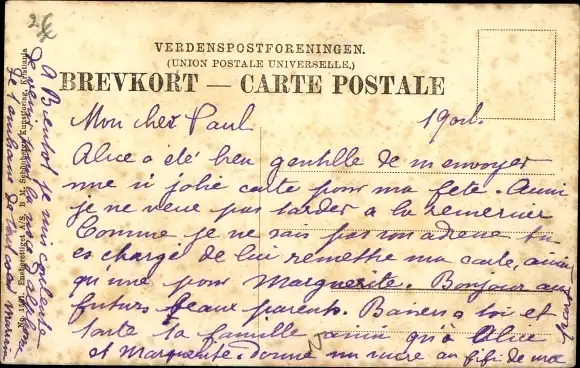 2€
VERDENSPOSTFORENINGEN.
(UNION POSTALE UNIVERSELLE,)
BREVKORT — CARTE POSTALE
Mon cher Paul 19 oct.
Alice a été bien gentille de m envoyer
une si jolie carte pour ma fete. Aussi
je ne veux pas tarder a la remercier
Comme je ne sais pas son adresse tu
es chargé de lui remettre ma carte, ainsi
qu'une pour Marguerite. Bonjour aux
futurs beaux parents. Baisers a toi et
toute ta famille ainsi qu'à Alice
et Marguerite. donne un sucre au fifi de ma
part
A Bientot je suis contente
de venir pour la noce d'
Je t'embrasse de tout coeur
No. Eneberettiget A/S. B. M. Kunstforlag, Kristiania